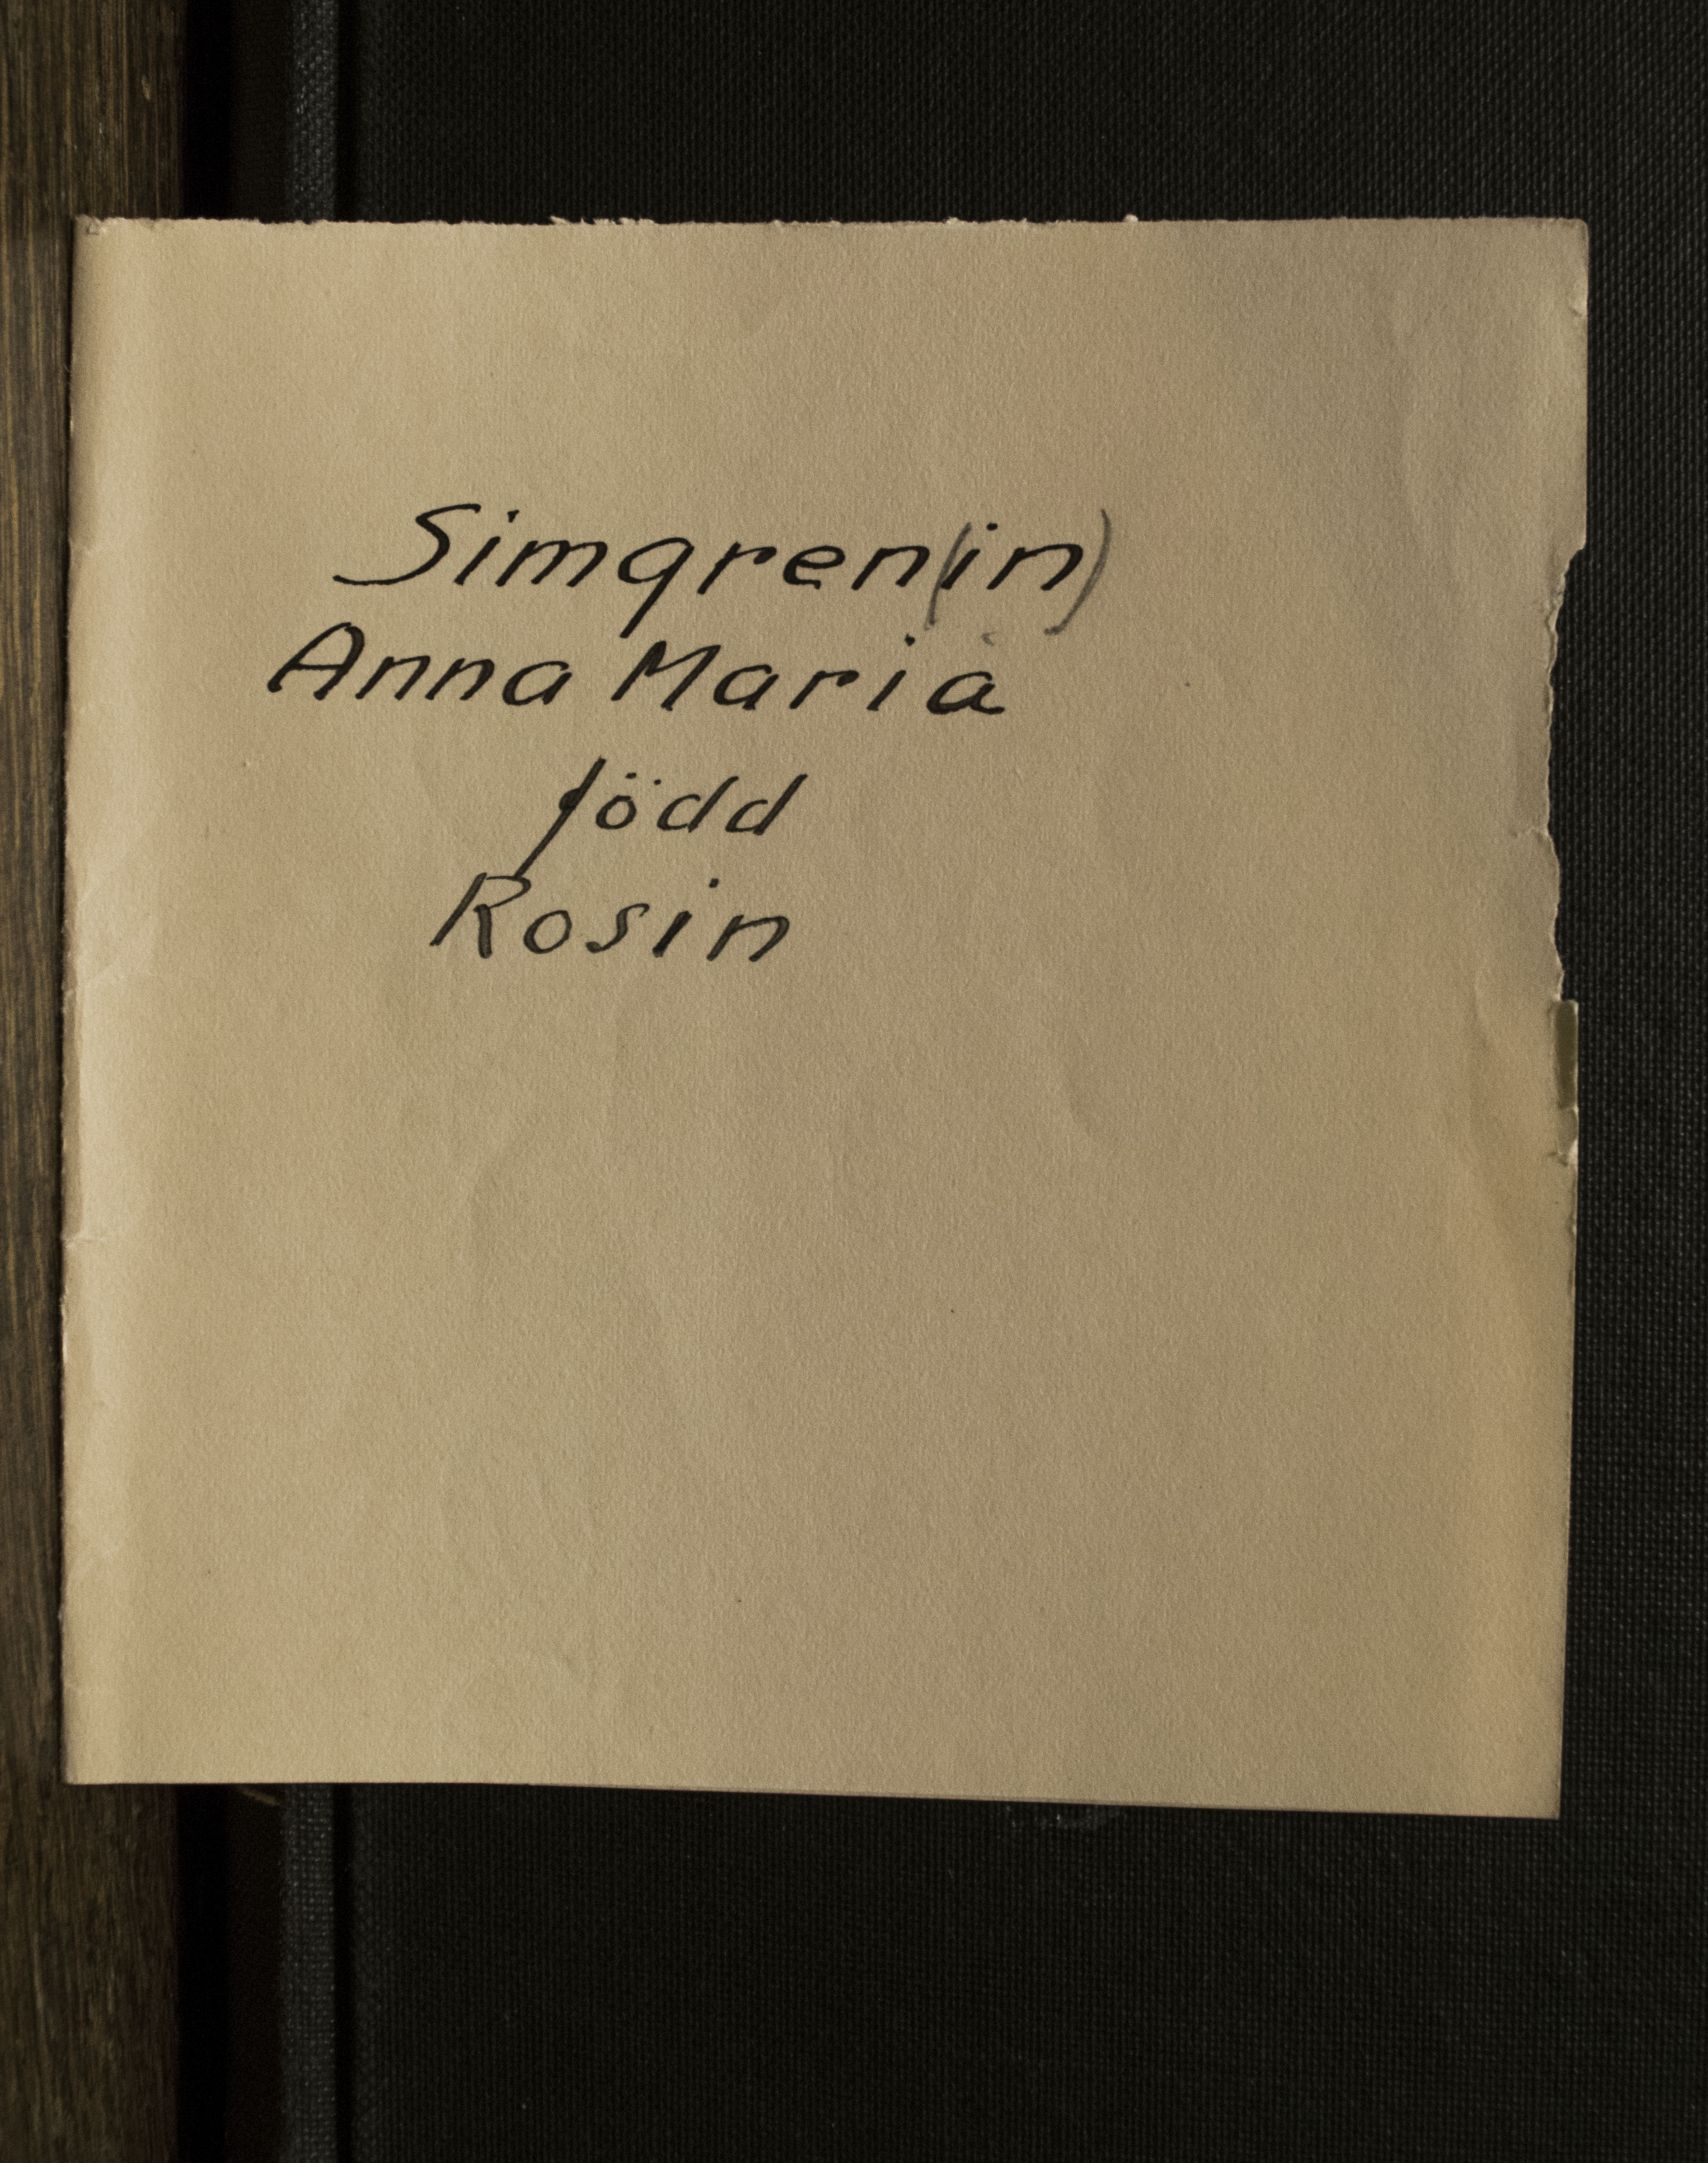 Simgren(in)
Anna Maria
född
Rosin